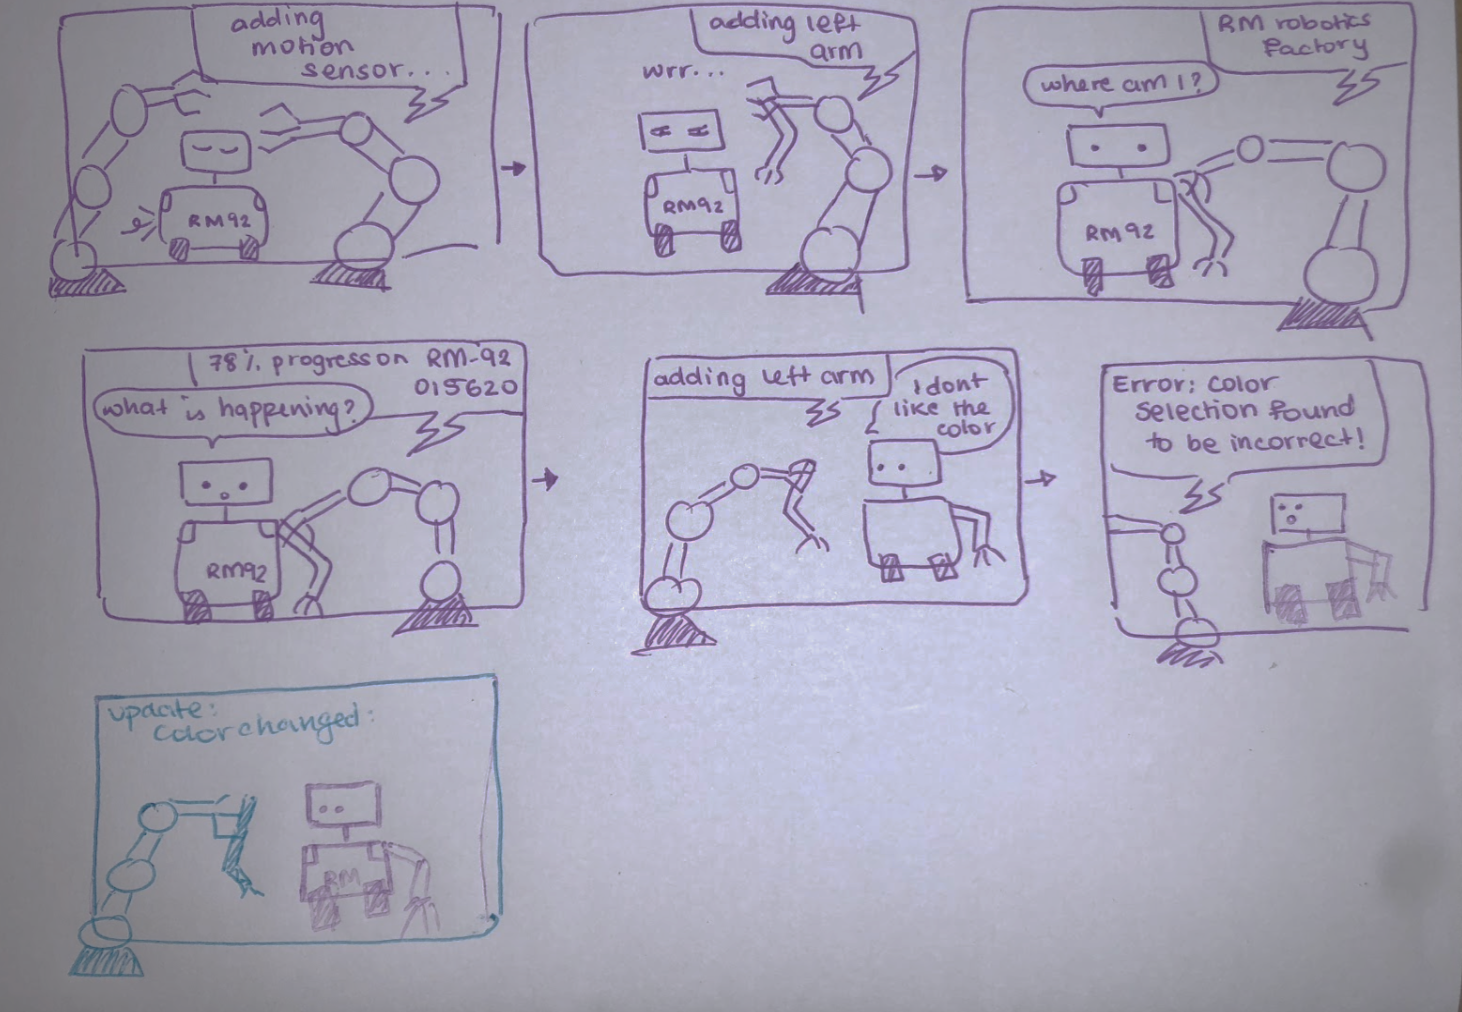 adding
motion
sensor...
RM92
adding left
arm
wrr...
RM92
RM robotics
factory
where am I?
RM92
78% progress on RM-92
015620
what is happening?
RM92
adding left arm
I dont
like the
color
Error: color
selection found
to be incorrect!
update:
color changed:
RM